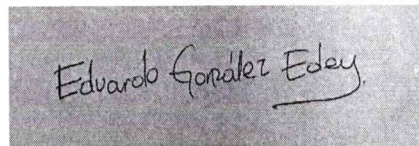 Eduardo González Edey.